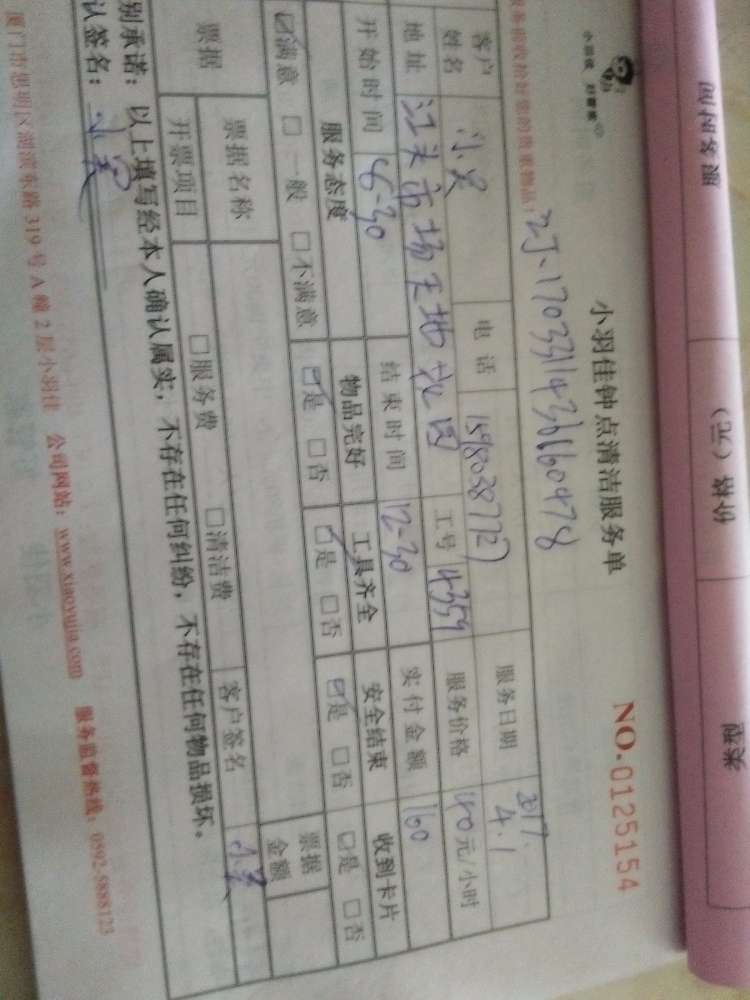 服务时间
价格（元）
类型
小羽佳 好管家
小羽佳钟点清洁服务单
NO.0125154
收拾好您的贵重物品：
客户姓名 小吴 电话 15980387727 服务日期 2017.4.1
地址 江头市场 花园 工号 4359 服务价格 元/小时
开始时间 结束时间 12-30 实付金额 160
服务态度 物品完好 工具齐全 安全结束 收到卡片
☑满意 □一般 □不满意 ☑是 □否 ☑是 □否 ☑是 □否 ☑是 □否
票据 票据名称 票据金额
开票项目 □服务费 □清洁费 客户签名 小吴
别承诺：以上填写经本人确认属实，不存在任何纠纷，不存在任何物品损坏。
认签名：小吴
厦门市思明区湖滨东路319号A幢2层小羽佳 公司网站：www.xiaoyujia.com 服务监督热线：0592-5888123